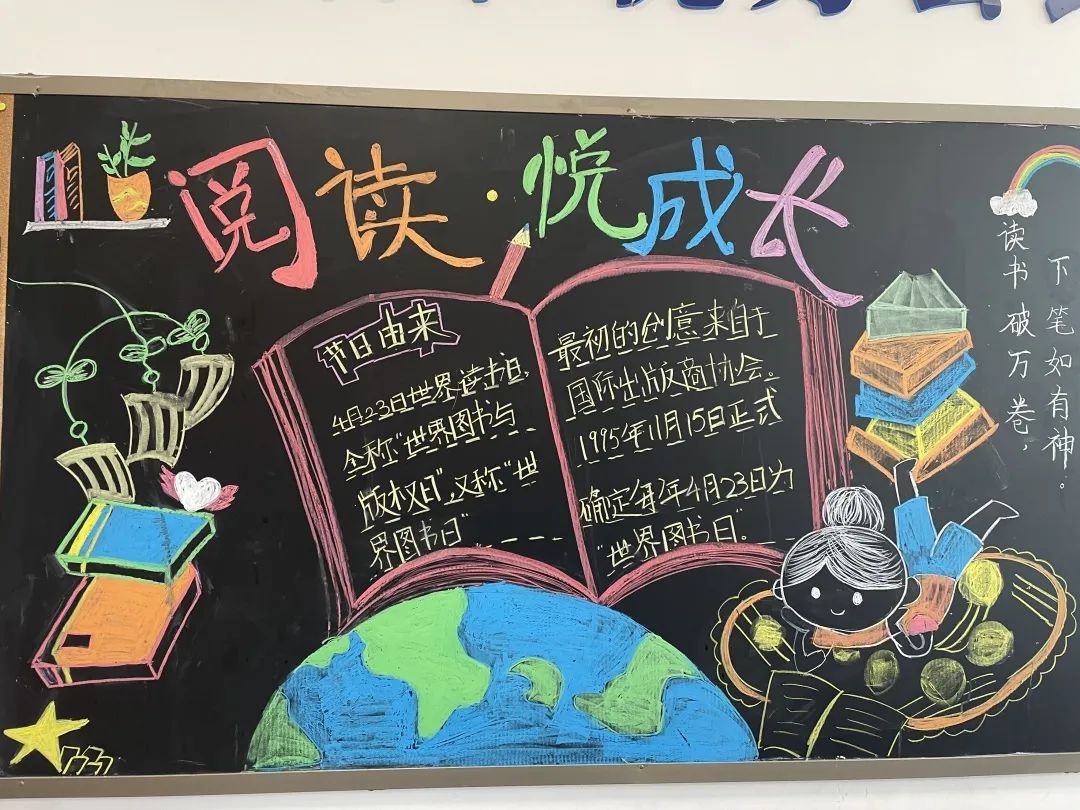 阅读·悦成长
节日由来
4月23日世界读书日,
全称“世界图书与
版权日”,又称“世
界图书日”
最初的创意来自于
国际出版商协会。
1995年11月15日正式
确定每年4月23日为
“世界图书日”.
读书破万卷,
下笔如有神。